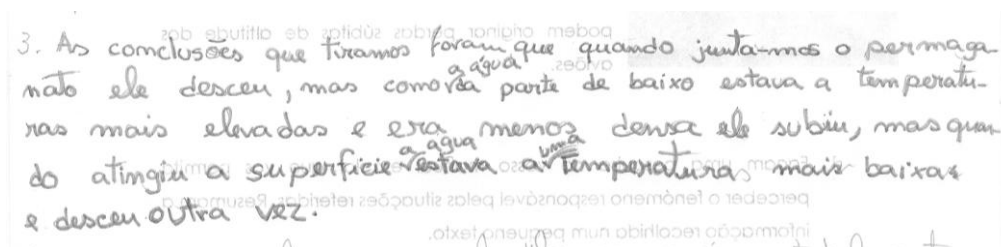 3. As comclusões que tiramos foram que quando junta-mos o permaga
nato ele desceu, mas como a água da parte de baixo estava a temperatu-
ras mais elevadas e era menos densa ele subiu, mas quan
do atingiu a superfície a água estava a uma temperaturas mais baixas
e desceu outra vez.